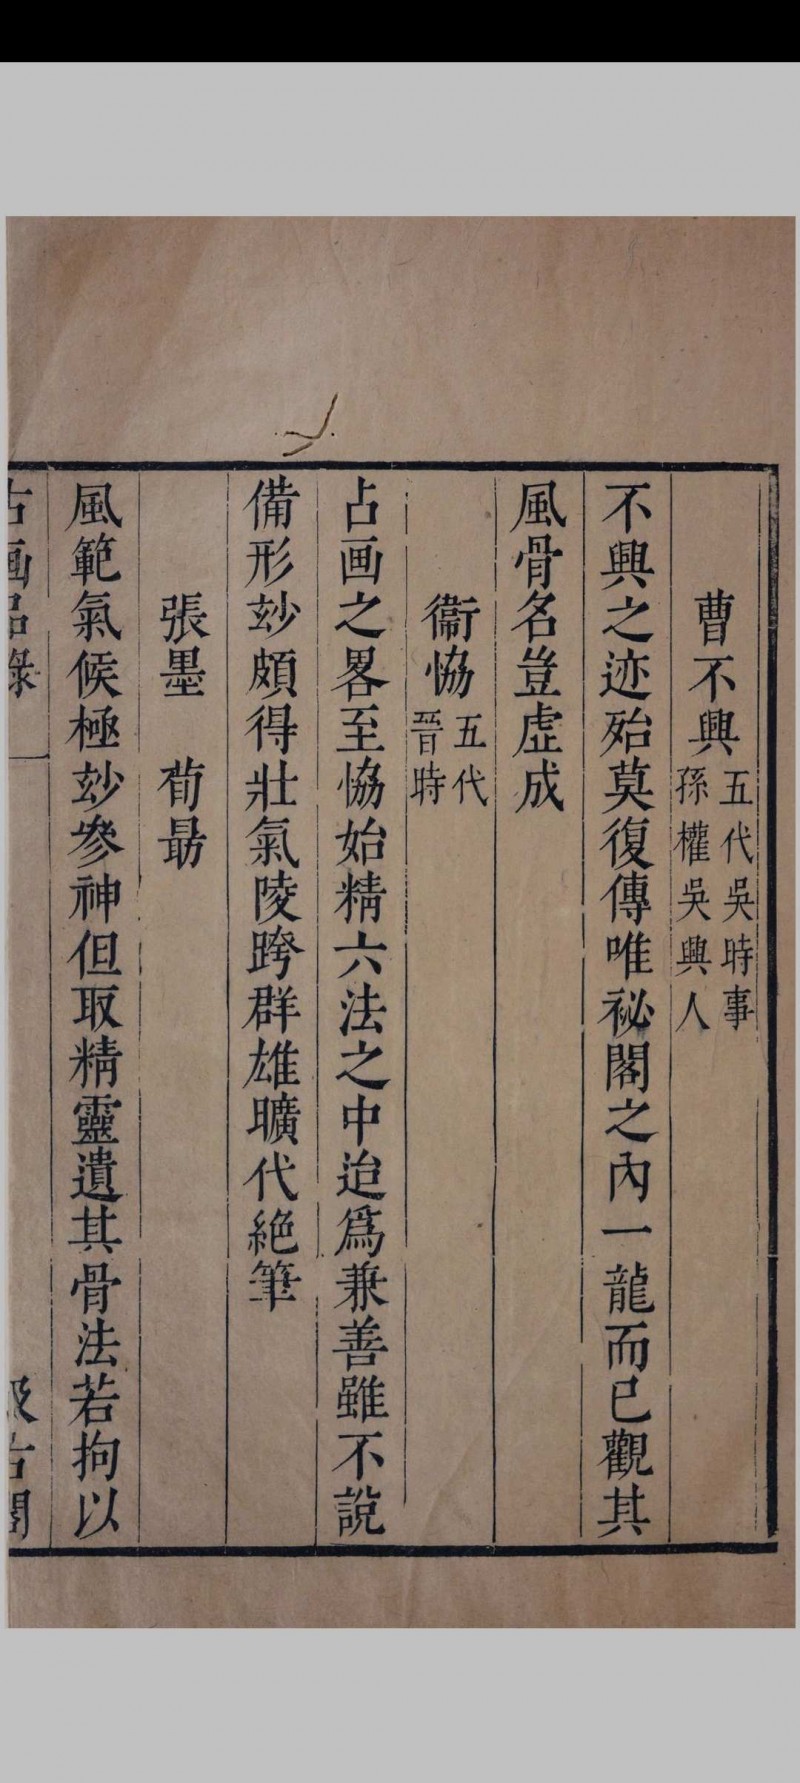 曹不興五代吳時事孫權吳興人
不興之迹殆莫復傳唯祕閣之內一龍而已觀其
風骨名豈虛成
衞恊五代晉時
占画之畧至恊始精六法之中迨爲兼善雖不說
備形玅頗得壯氣陵跨群雄曠代絶筆
張墨　荀勗
風範氣候極玅參神但取精靈遺其骨法若拘以
古画品錄　一　汲古閣